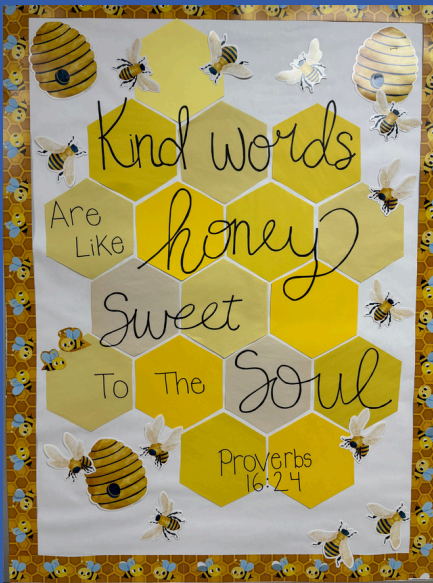 Kind words
Are
Like honey
Sweet
To The Soul
Proverbs
16:24